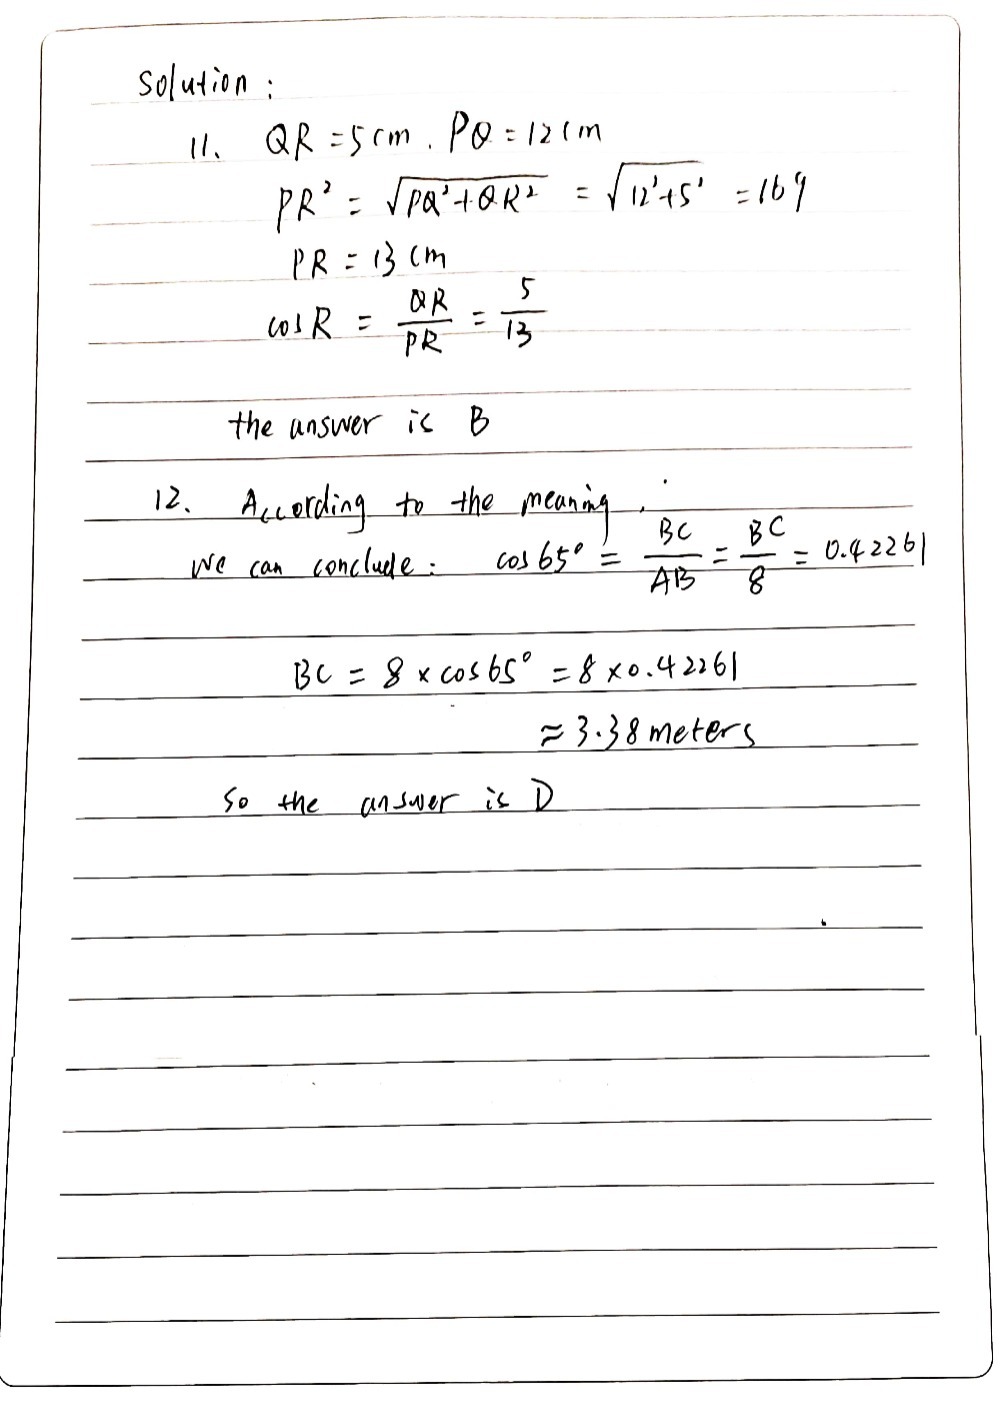 Solution :
11. QR = 5cm . PQ = 12cm
PR² = √PQ²+QR² = √12²+5² = 169
PR = 13 cm
cosR = QR/PR = 5/13
the answer is B
12. According to the meaning ,
We can conclude : cos65° = BC/AB = BC/8 = 0.42261
BC = 8 × cos65° = 8 × 0.42261
≈ 3.38 meters
So the answer is D